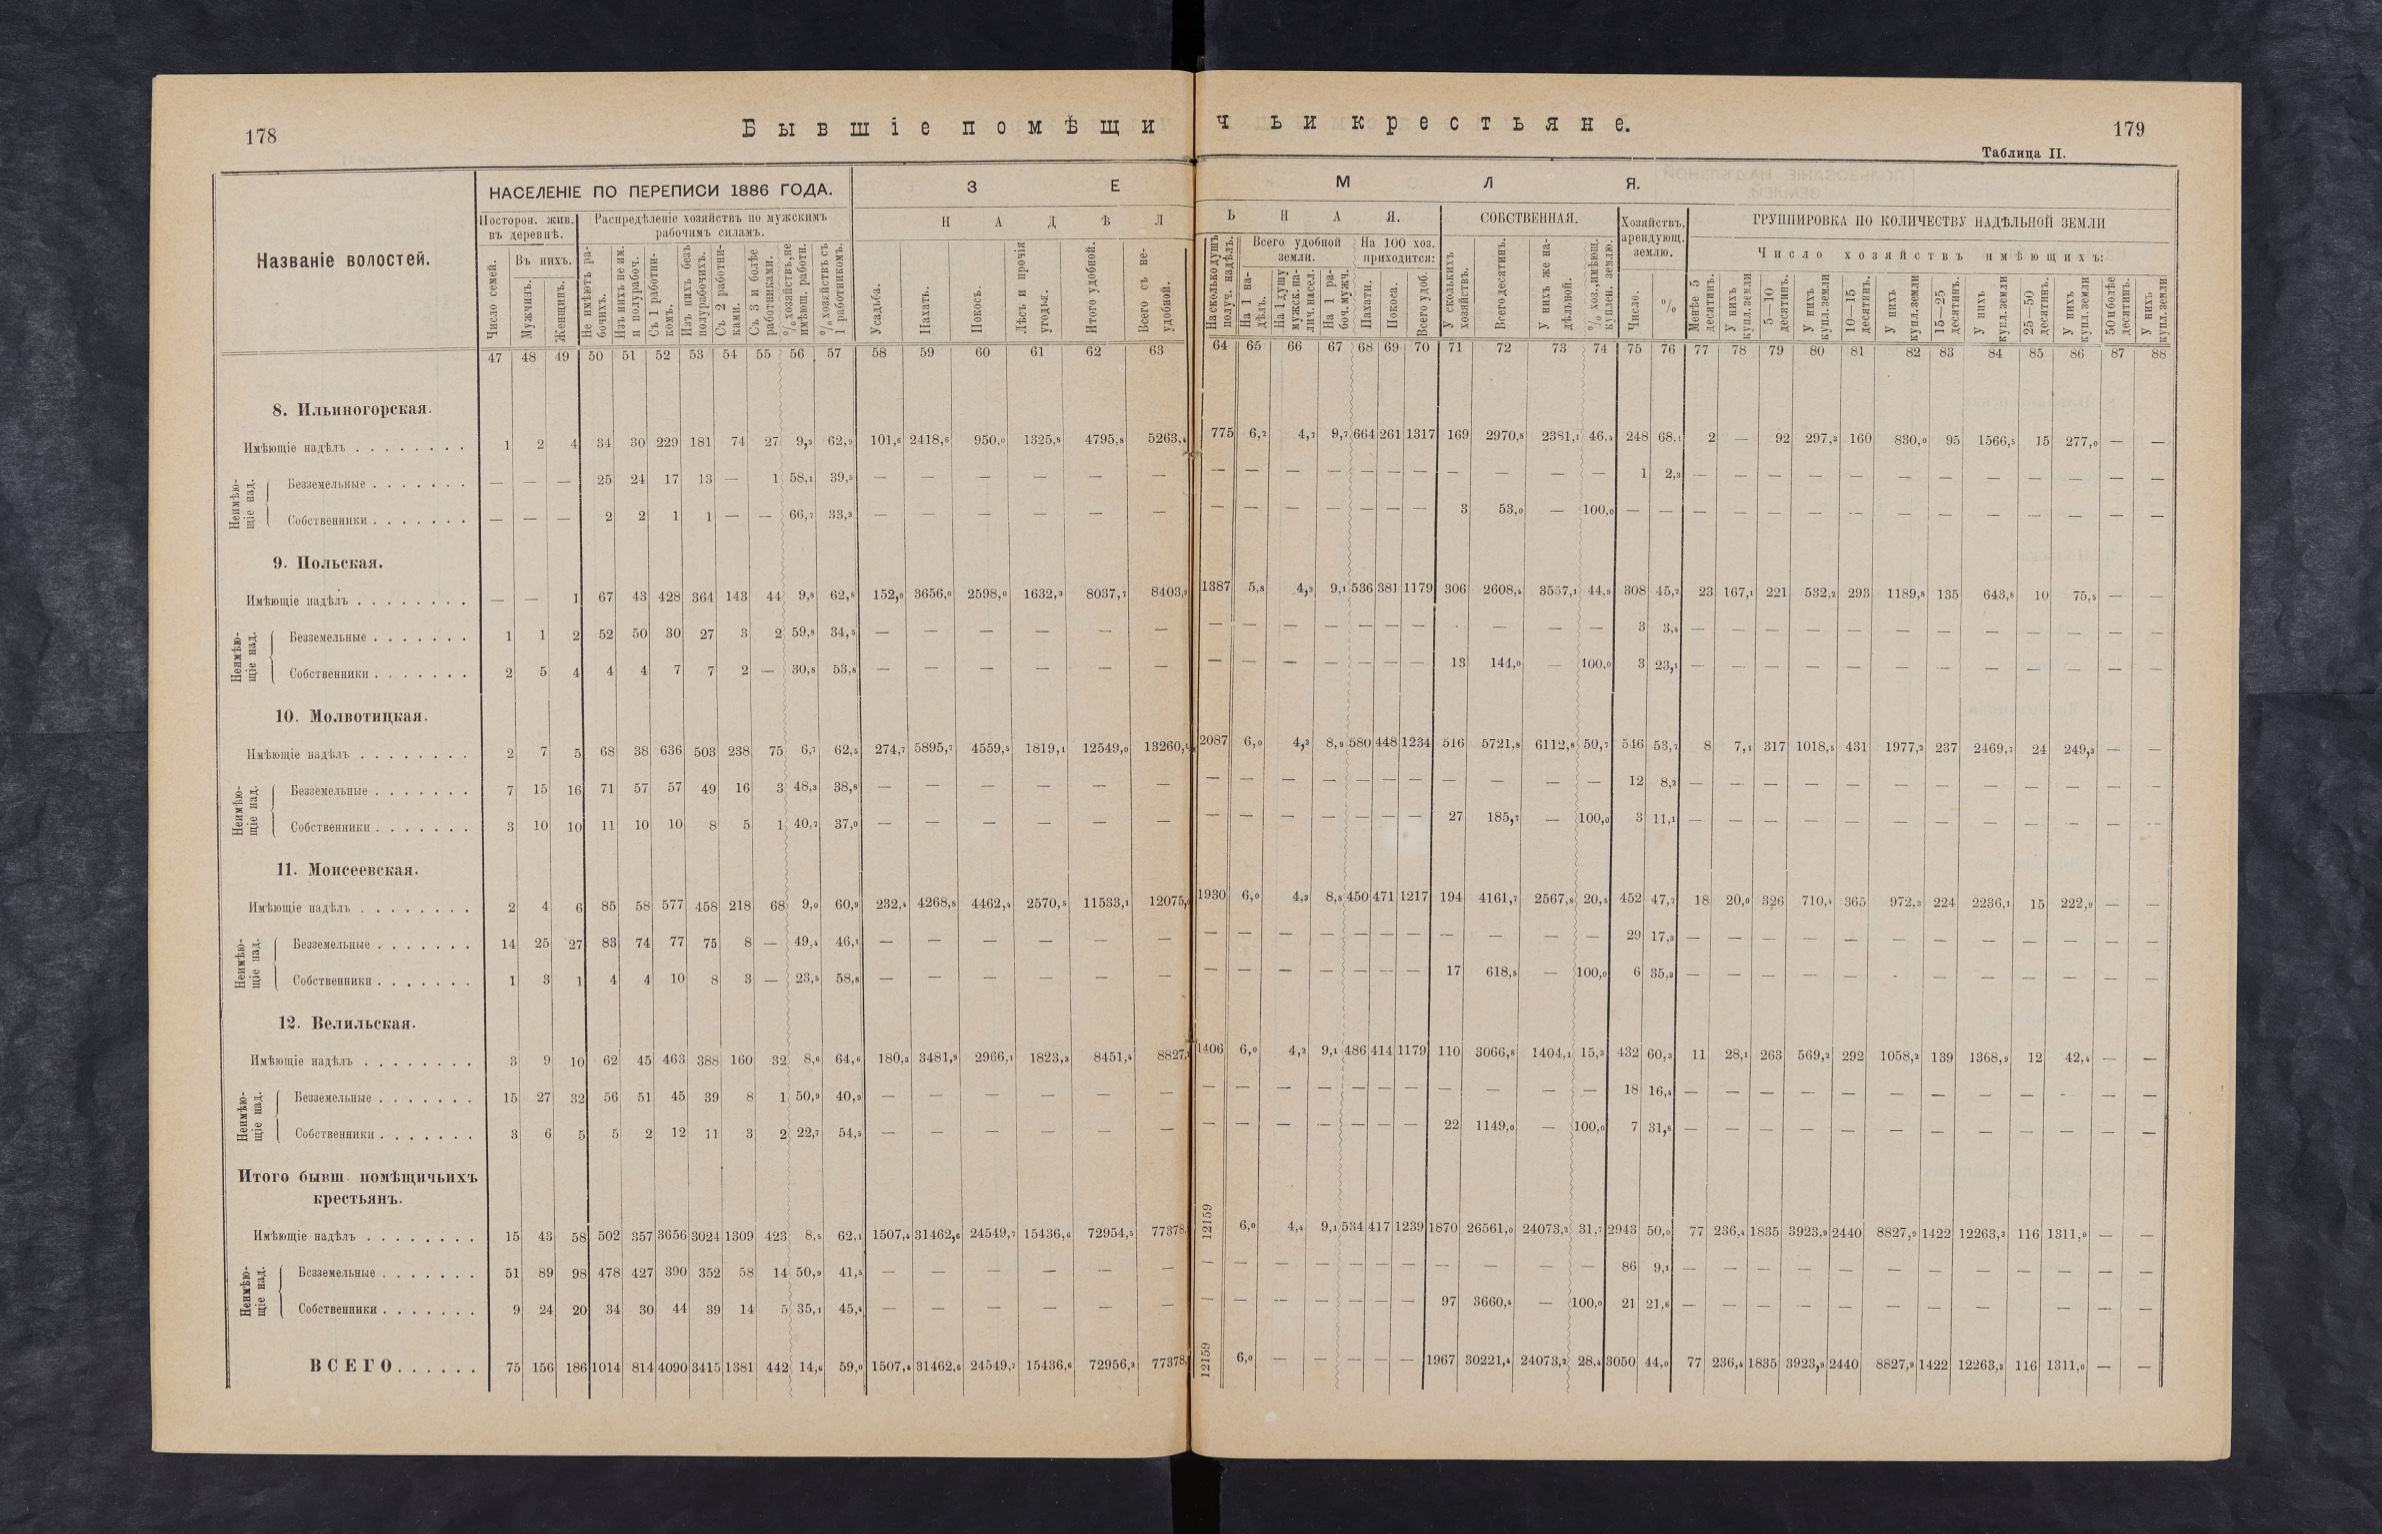 178
Бывшіе помѣщичьи крестьяне.
179
Таблица II.
Названіе волостей.
НАСЕЛЕНІЕ ПО ПЕРЕПИСИ 1886 ГОДА.
ЗЕМЛЯ.
Посторон. жив. въ деревнѣ.
Распредѣленіе хозяйствъ по мужскимъ рабочимъ силамъ.
НАДѢЛЬНАЯ.
СОБСТВЕННАЯ.
Хозяйствъ, арендующ. землю.
ГРУППИРОВКА ПО КОЛИЧЕСТВУ НАДѢЛЬНОЙ ЗЕМЛИ
Въ нихъ.
Всего удобной земли.
На 100 хоз. приходится:
Число хозяйствъ имѣющихъ:
Число семей.
Мужчинъ.
Женщинъ.
Не имѣютъ рабочихъ.
Изъ нихъ не им. и полурабоч.
Съ 1 работникомъ.
Изъ нихъ безъ полурабочихъ.
Съ 2 работниками.
Съ 3 и болѣе работниками.
% хозяйствъ, не имѣющ. работн.
% хозяйствъ съ 1 работникомъ.
Усадьба.
Пахать.
Покосъ.
Лѣсъ и прочія угодья.
Итого удобной.
Всего съ неудобной.
На сколько душъ получ. надѣлъ.
На 1 надѣлъ.
На 1 душу мужск. налич. насел.
На 1 рабоч. мужч.
Пахати.
Покоса.
Всего удоб.
У сколькихъ хозяйствъ.
Всего десятинъ.
У нихъ же надѣльной.
% хоз., имѣющ. куплен. землю.
Число.
%
Менѣе 5 десятинъ.
У нихъ купл. земли
5—10 десятинъ.
У нихъ купл. земли
10—15 десятинъ.
У нихъ купл. земли
15—25 десятинъ.
У нихъ купл. земли
25—50 десятинъ.
У нихъ купл. земли
50 и болѣе десятинъ.
У нихъ купл. земли
47 48 49 50 51 52 53 54 55 56 57 58 59 60 61 62 63 64 65 66 67 68 69 70 71 72 73 74 75 76 77 78 79 80 81 82 83 84 85 86 87 88
8. Ильиногорская.
Имѣющіе надѣлъ . . . . . . . . 1 2 4 34 30 229 181 74 27 9,3 62,9 101,6 2418,6 950,0 1325,8 4795,8 5263,4 775 6,2 4,7 9,7 664 261 1317 169 2970,8 2381,1 46,4 248 68,1 2 — 92 297,3 160 830,0 95 1566,5 15 277,0 — —
Неимѣющіе над.
Безземельные . . . . . . . — — — 25 24 17 13 — 1 58,1 39,5 — — — — — — — — — — — — — — — — — 1 2,3 — — — — — — — — — — — —
Собственники . . . . . . . — — — 2 2 1 1 — — 66,7 33,3 — — — — — — — — — — — — — 3 53,0 — 100,0 — — — — — — — — — — — — — —
9. Польская.
Имѣющіе надѣлъ . . . . . . . . — — 1 67 43 428 364 143 44 9,8 62,8 152,0 3656,0 2598,0 1632,3 8037,7 8403,3 1387 5,8 4,3 9,1 536 381 1179 306 2608,4 3557,1 44,9 308 45,2 23 167,1 221 532,2 293 1189,8 135 643,8 10 75,5 — —
Неимѣющіе над.
Безземельные . . . . . . . 1 1 2 52 50 30 27 3 2 59,8 34,5 — — — — — — — — — — — — — — — — — 3 3,4 — — — — — — — — — — — —
Собственники . . . . . . . 2 5 4 4 4 7 7 2 — 30,8 53,8 — — — — — — — — — — — — — 13 144,0 — 100,0 3 23,1 — — — — — — — — — — — —
10. Молвотицкая.
Имѣющіе надѣлъ . . . . . . . . 2 7 5 68 38 636 503 238 75 6,7 62,5 274,7 5895,7 4559,5 1819,1 12549,0 13260,5 2087 6,0 4,3 8,9 580 448 1234 516 5721,8 6112,8 50,7 546 53,7 8 7,1 317 1018,5 431 1977,2 237 2469,7 24 249,3 — —
Неимѣющіе над.
Безземельные . . . . . . . 7 15 16 71 57 57 49 16 3 48,3 38,8 — — — — — — — — — — — — — — — — — 12 8,2 — — — — — — — — — — — —
Собственники . . . . . . . 3 10 10 11 10 10 8 5 1 40,7 37,0 — — — — — — — — — — — — — 27 185,7 — 100,0 3 11,1 — — — — — — — — — — — —
11. Моисеевская.
Имѣющіе надѣлъ . . . . . . . . 2 4 6 85 58 577 458 218 68 9,0 60,9 232,4 4268,8 4462,4 2570,5 11533,1 12075,0 1930 6,0 4,3 8,8 450 471 1217 194 4161,7 2567,8 20,5 452 47,7 18 20,0 326 710,4 365 972,3 224 2236,1 15 222,9 — —
Неимѣющіе над.
Безземельные . . . . . . . 14 25 27 83 74 77 75 8 — 49,4 46,1 — — — — — — — — — — — — — — — — — 29 17,3 — — — — — — — — — — — —
Собственники . . . . . . . 1 3 1 4 4 10 8 3 — 23,5 58,8 — — — — — — — — — — — — — 17 618,5 — 100,0 6 35,3 — — — — — — — — — — — —
12. Велильская.
Имѣющіе надѣлъ . . . . . . . . 3 9 10 62 45 463 388 160 32 8,6 64,6 180,3 3481,9 2966,1 1823,3 8451,4 8827, 1406 6,0 4,2 9,1 486 414 1179 110 3066,8 1404,1 15,3 432 60,3 11 28,1 263 569,2 292 1058,2 139 1368,9 12 42,4 — —
Неимѣющіе над.
Безземельные . . . . . . . 15 27 32 56 51 45 39 8 1 50,9 40,9 — — — — — — — — — — — — — — — — — 18 16,4 — — — — — — — — — — — —
Собственники . . . . . . . 3 6 5 5 2 12 11 3 2 22,7 54,5 — — — — — — — — — — — — — 22 1149,0 — 100,0 7 31,8 — — — — — — — — — — — —
Итого бывш. помѣщичьихъ
крестьянъ.
Имѣющіе надѣлъ . . . . . . . . 15 43 58 502 357 3656 3024 1309 423 8,5 62,1 1507,4 31462,6 24549,7 15436,6 72954,5 77378, 12159 6,0 4,4 9,1 534 417 1239 1870 26561,0 24073,2 31,7 2943 50,0 77 236,4 1835 3923,9 2440 8827,9 1422 12263,3 116 1311,0 — —
Неимѣющіе над.
Безземельные . . . . . . . 51 89 98 478 427 390 352 58 14 50,9 41,5 — — — — — — — — — — — — — — — — — 86 9,1 — — — — — — — — — — — —
Собственники . . . . . . . 9 24 20 34 30 44 39 14 5 35,1 45,4 — — — — — — — — — — — — — 97 3660,4 — 100,0 21 21,6 — — — — — — — — — — — —
ВСЕГО . . . . . . 75 156 186 1014 814 4090 3415 1381 442 14,6 59,0 1507,4 31462,6 24549,7 15436,6 72956,3 77378, 12159 6,0 — — — — — 1967 30221,4 24073,2 28,4 3050 44,0 77 236,4 1835 3923,9 2440 8827,9 1422 12263,3 116 1311,0 — —